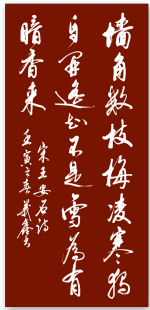 墙角数枝梅凌寒独
自开遥知不是雪为有
暗香来
宋王安石诗
壬寅之春义鑫书